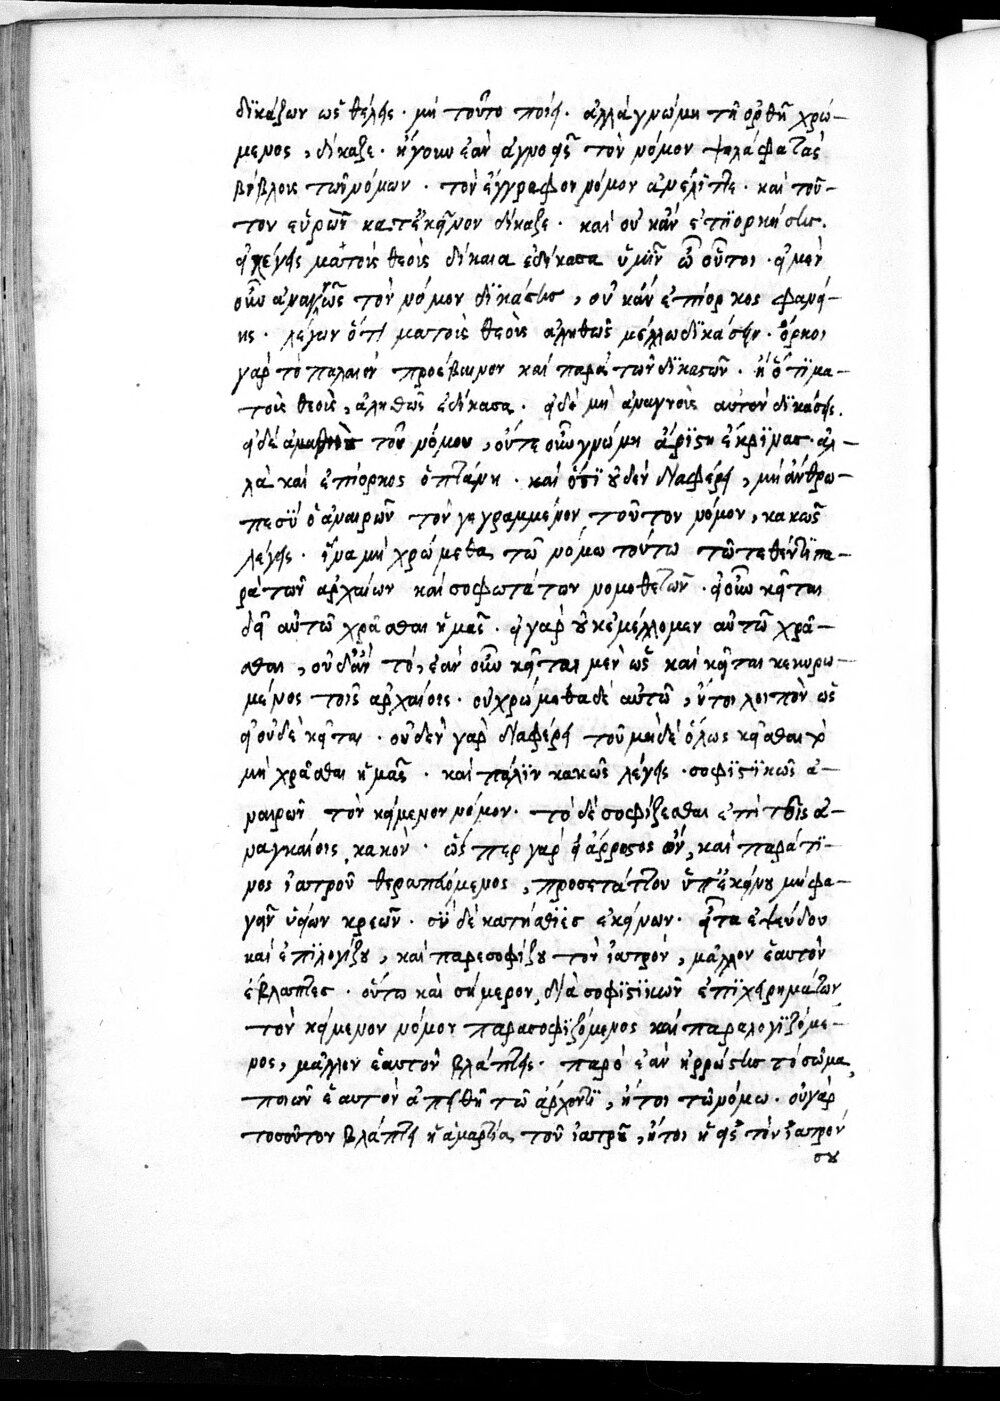 δϊκάζων ὡς θέλῃς · μὴ τοῦτο ποίει · ἀλλὰ γνώμη τῆ ὀρθῆ χρώ-
μενος, δίκαζε · ἤγουν ἐὰν ἀγνοεῖς τὸν νόμον ψηλάφα τὰς
βίβλους τῶν νόμων · τὸν ἔγγραφον νόμον ἀνελίττε · καὶ τοῦ-
τον εὑρὼν κατ' ἐκεῖνον δίκαζε · καὶ οὐκ ἂν ἐπϊορκήσεις ·
εἰ λέγεις μὰ τοὺς θεοὺς δίκαια ἐδίκασα ὑμῖν ὦ οὗτοι · εἰ μὲν
οὖν ἀναγνοὺς τὸν νόμον δϊκάσεις, οὐκ ἂν ἐπίορκος φανεί-
ης · λέγων ὅτι μὰ τοὺς θεοὺς ἀληθῶς μέλλω δϊκάσειν · ὅρκοι
γὰρ τὸ παλαιὸν προέβαινον καὶ παρὰ τῶν δϊκαστῶν · ἢ ὅτϊ μὰ
τοὺς θεοὺς, ἀληθῶς ἐδίκασα · εἰ δὲ μὴ ἀναγνοὺς αὐτὸν δϊκάσεις ·
εἰ δὲ τὸν νόμον, οὔτε οὖν γνώμη ἀρίϊστη ἔκρϊνας · ἀλ-
λὰ καὶ ἐπίορκος ὀπτάνη · καὶ ὅτϊ οὐδὲν διαφέρει, μὴ ἄνθρω-
πε σϋ ὁ ἀναιρῶν τὸν γεγραμμένον τοῦτον νόμον, κακῶς
λέγεις · ἵνα μὴ χρώμεθα τῶ νόμω τούτω τῶ τεθέντϊ πα-
ρὰ τῶν ἀρχαίων καὶ σοφωτάτων νομοθετῶν · εἰ οὖν κεῖται
δεῖ αὐτῶ χρᾶσθαι ἡμᾶς · εἰ γὰρ οὐκ ἐμέλλομεν αὐτῶ χρᾶ-
σθαι, οὐδ' ἂν τό, ἐὰν οὖν κεῖται μὲν ὡς καὶ κεῖται κεκυρω-
μένος τοῖς ἀρχαίοις · οὐ χρώμεθα δὲ αὐτῶ, ἤτοι λοιπὸν ὡς
εἰ οὐδὲ κεῖται · οὐδὲν γὰρ διαφέρει τοῦ μηδὲ ὅλως κεῖσθαι τὸ
μὴ χρᾶσθαι ἡμᾶς · καὶ πάλϊν κακῶς λέγεις · σοφϊστϊκῶς ἀ-
ναιρῶν τὸν κείμενον νόμον · τὸ δὲ σοφίζεσθαι ἐπὶ τοῖς ἀ-
ναγκαίοις κακὸν · ὥσπερ γὰρ εἰ ἄρρωστος ὢν, καὶ παρά τϊ-
νος ἰατροῦ θεραπευόμενος, προσετάττου ὑπ' ἐκείνου μὴ φα-
γεῖν ὑείων κρεῶν · σϋ δὲ κατήσθϊες ἐκείνων · εἶτα ἐψεύδου
καὶ ἐπϊλογίζου, καὶ παρεσοφίζου τὸν ἰατρόν, μᾶλλον ἑαυτὸν
ἔβλαπτες · οὕτω καὶ σήμερον, διὰ σοφϊστϊκῶν ἐπϊχειρημάτων
τὸν κείμενον νόμον παρασοφϊζόμενος καὶ παραλογϊζόμε-
νος, μᾶλλον ἑαυτὸν βλάπτεις · παρὸ ἐὰν ἠρρώστεις τὸ σῶμα,
ποιῶν ἑαυτὸν ἀπειθῆ τῶ ἄρχοντϊ, ἤτοι τῶ νόμω · οὐ γὰρ
τοσοῦτον βλάπτει ἡ ἁμαρτία τοῦ ἰατροῦ, ἤτοι ἡ εἰς τὸν ἰατρὸν
σου